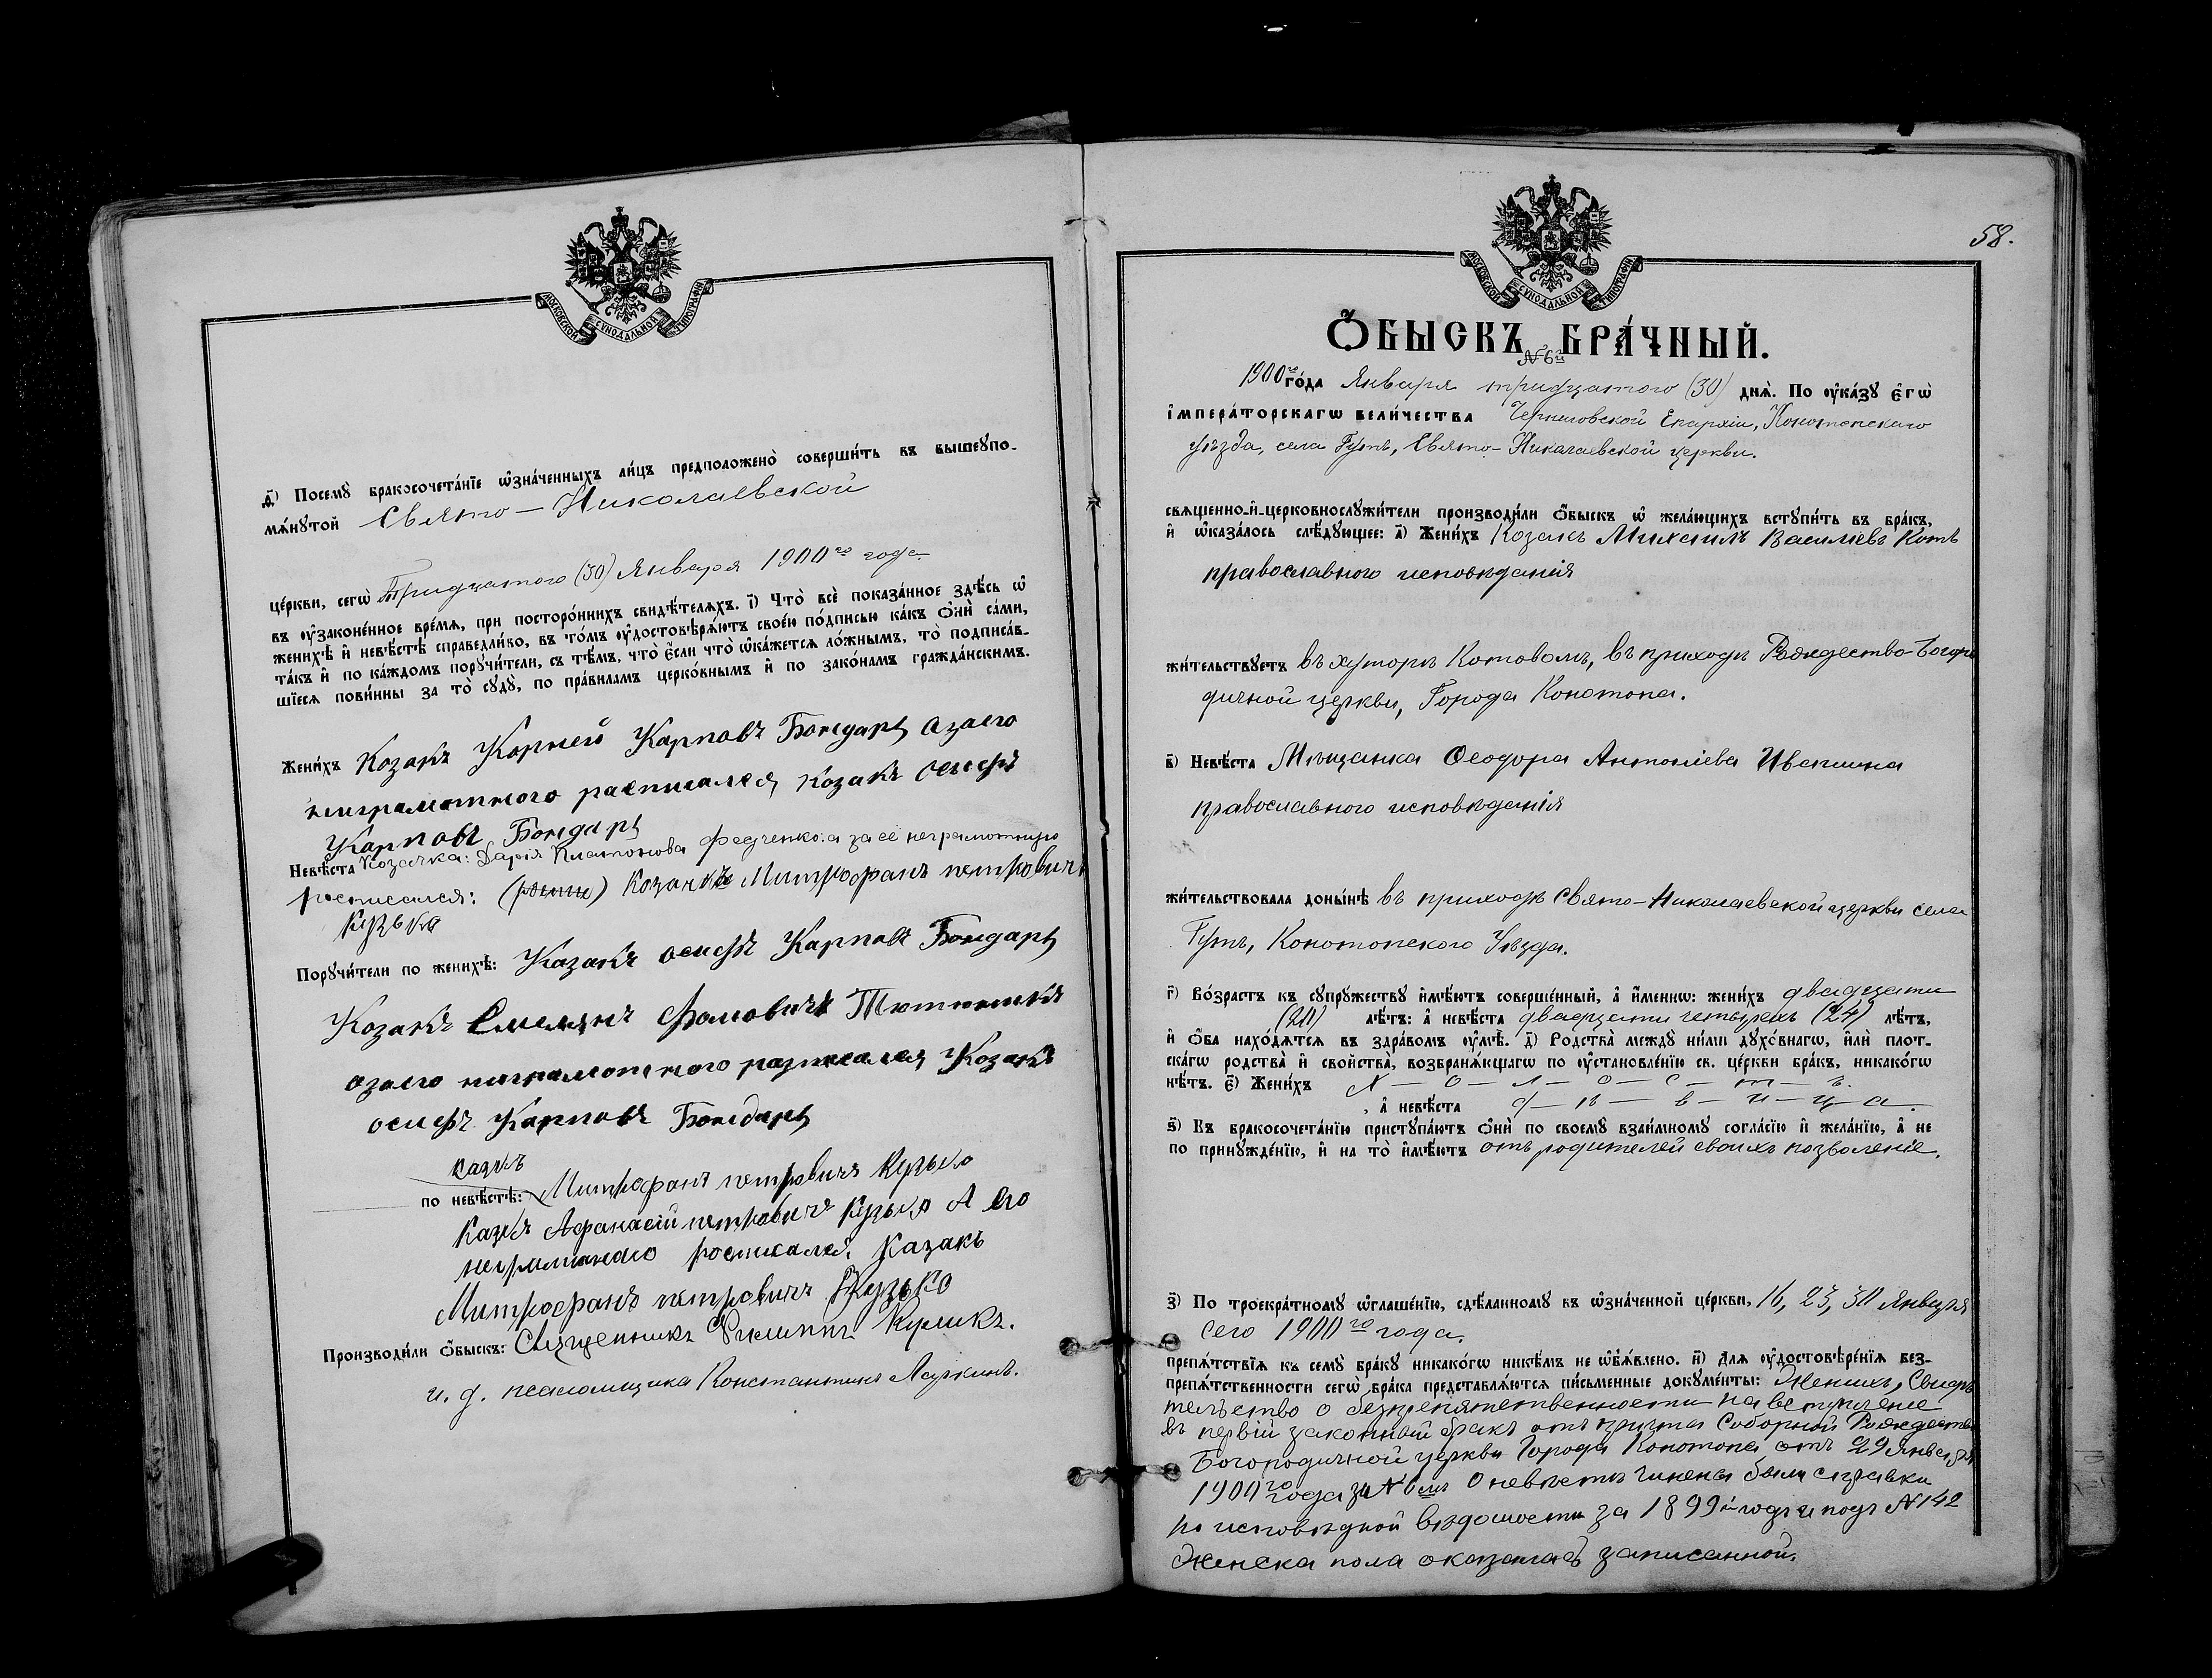 МОСКОВСКОЙ СѴНОДАЛЬНОЙ ТИПОГРАФІИ
д҃) Посемꙋ̀ бракосочета́нїе ѡ҆зна́ченныхъ ли́цъ предположено̀ соверши́ть въ вышеꙋпо-
мѧ́нꙋтой Свято-Николаевской
це́ркви, сегѡ̀ Тридцатого (30) Января 1900го года.
въ ᲂу҆зако́ненное вре́мѧ, при посторо́ннихъ свидѣ́телѧхъ. і҃) Что̀ всѐ показа́нное здѣ́сь ѡ҆
женихѣ̀ и҆ невѣ́стѣ справедли́во, въ то́мъ ᲂу҆достовѣрѧ́ютъ свое́ю по́дписью ка́къ ѻ҆нѝ са́ми,
та́къ и҆ по ка́ждомъ порꙋчи́тели, съ тѣ́мъ, что̀ є҆́сли что̀ ѡ҆ка́жетсѧ ло́жнымъ, то̀ подписа́в-
шїесѧ пови́нны за то̀ сꙋдꙋ̀, по пра́виламъ церко́внымъ и҆ по зако́намъ гражда́нскимъ.
Жени́хъ Козакъ Корней Карповъ Бондарь азаего
неиграмотного расписалея козакъ осифъ
Карповъ Бондарь
Невѣ́ста Козачка: Дарія Платонова Федченко: а за её неграмотную
росписался: Козакъ Митрофанъ петровичъ
Кузько
Порꙋчи́тели по женихѣ̀: Казакъ осифъ Карповъ Бондарь
Козакъ Емелянъ Фомовичъ Тютюникъ
азаего неграмотного Козакъ
осифъ Карповъ Бондарь
казкъ
по невѣ́стѣ: Митрофанъ петровичъ Кузько
Казкъ Афанасій петровичъ Кузько А его
росписался Казакъ
Митрофанъ петровичъ Кузько
Производи́ли ѻ҆́быскъ: Священникъ Филиппъ Куликъ.
и. д. псаломщика Константинъ
58.
МОСКОВСКОЙ СѴНОДАЛЬНОЙ ТИПОГРАФІИ
Ѻ҆́БЫСКЪ БРА́ЧНЫЙ.
№ 6й
1900го го́да Января тридцатого (30) днѧ̀. По ᲂу҆ка́зꙋ є҆гѡ̀
і҆мпера́торскагѡ вели́чества Черниговской Епархіи, Конотопскаго
уѣзда, села Гутъ, Свято-Николаевской церкви.
свѧще́нно-и҆-церковнослꙋжи́тели производи́ли ѻ҆́быскъ ѡ҆ жела́ющихъ встꙋпи́ть въ бра́къ,
и҆ ѡ҆каза́лось слѣ́дꙋющее: а҃) Жени́хъ Козакъ Михаилъ Василіевъ Котъ
православного исповѣданія
жи́тельствꙋетъ въ хуторѣ Котовомъ, въ приходѣ Рождество-Богоро
дичной церкви, Города Конотопа.
в҃) Невѣ́ста Мѣщанка Ѳеодора Антоніева Ивашина
православного исповѣданія
жи́тельствовала доны́нѣ въ приходѣ Свято-Николаевской церкви села
Гутъ, Конотопского Уѣзда.
г҃) Во́зрастъ къ сꙋпрꙋ́жествꙋ и҆мѣ́ютъ соверше́нный, а҆ и҆́меннѡ: жени́хъ двадцати
(20) лѣ́тъ: а҆ невѣ́ста двадцати четырехъ (24) лѣ́тъ,
и҆ ѻ҆́ба нахо́дѧтсѧ въ здра́вомъ ᲂу҆мѣ̀. д҃) Родства̀ междꙋ ни́ми дꙋхо́внагѡ, и҆лѝ плот-
ска́гѡ родства̀ и҆ сво́йства̀, возбранѧ́ющагѡ по ᲂу҆становле́нїю св. це́ркви бра́къ, никако́гѡ
нѣ́тъ. є҃) Жени́хъ х — о — л — о — с — т — ъ.
, а҆ невѣ́ста д — ѣ — в — и — ц — а.
ѕ҃) Къ бракосочета́нїю приступа́ютъ ѻ҆нѝ по своемꙋ̀ взаи́мномꙋ согла́сїю и҆ жела́нїю, а҆ не
по принꙋжде́нїю, и҆ на то̀ и҆мѣ́ютъ отъ родителей своихъ позволеніе.
з҃) По троекра́тномꙋ ѡ҆глаше́нїю, сдѣ́ланномꙋ въ ѡ҆зна́ченной це́ркви, 16, 23, 30 Января
сего 1900го года.
препѧ́тствїѧ къ семꙋ̀ бра́кꙋ никако́гѡ никѣ́мъ не ѡ҆б̾ѧ́влено. и҃) Длѧ ᲂу҆достовѣре́нїѧ без-
препѧ́тственности сегѡ̀ бра́ка представлѧ́ютсѧ пи́сьменные докꙋме́нты: Женихъ, Свидѣ
тельство о безпрепятственности на вступление
въ первій законный бракъ отъ причта Соборной Рождество
Богородичной церкви Города Конотопа отъ 29 Января
1900го года за № 6мъ О невѣстѣ чинены были справки
по исповѣдной вѣдомости за 1899й годъ и подъ № 142
Женска пола оказалась записанной.